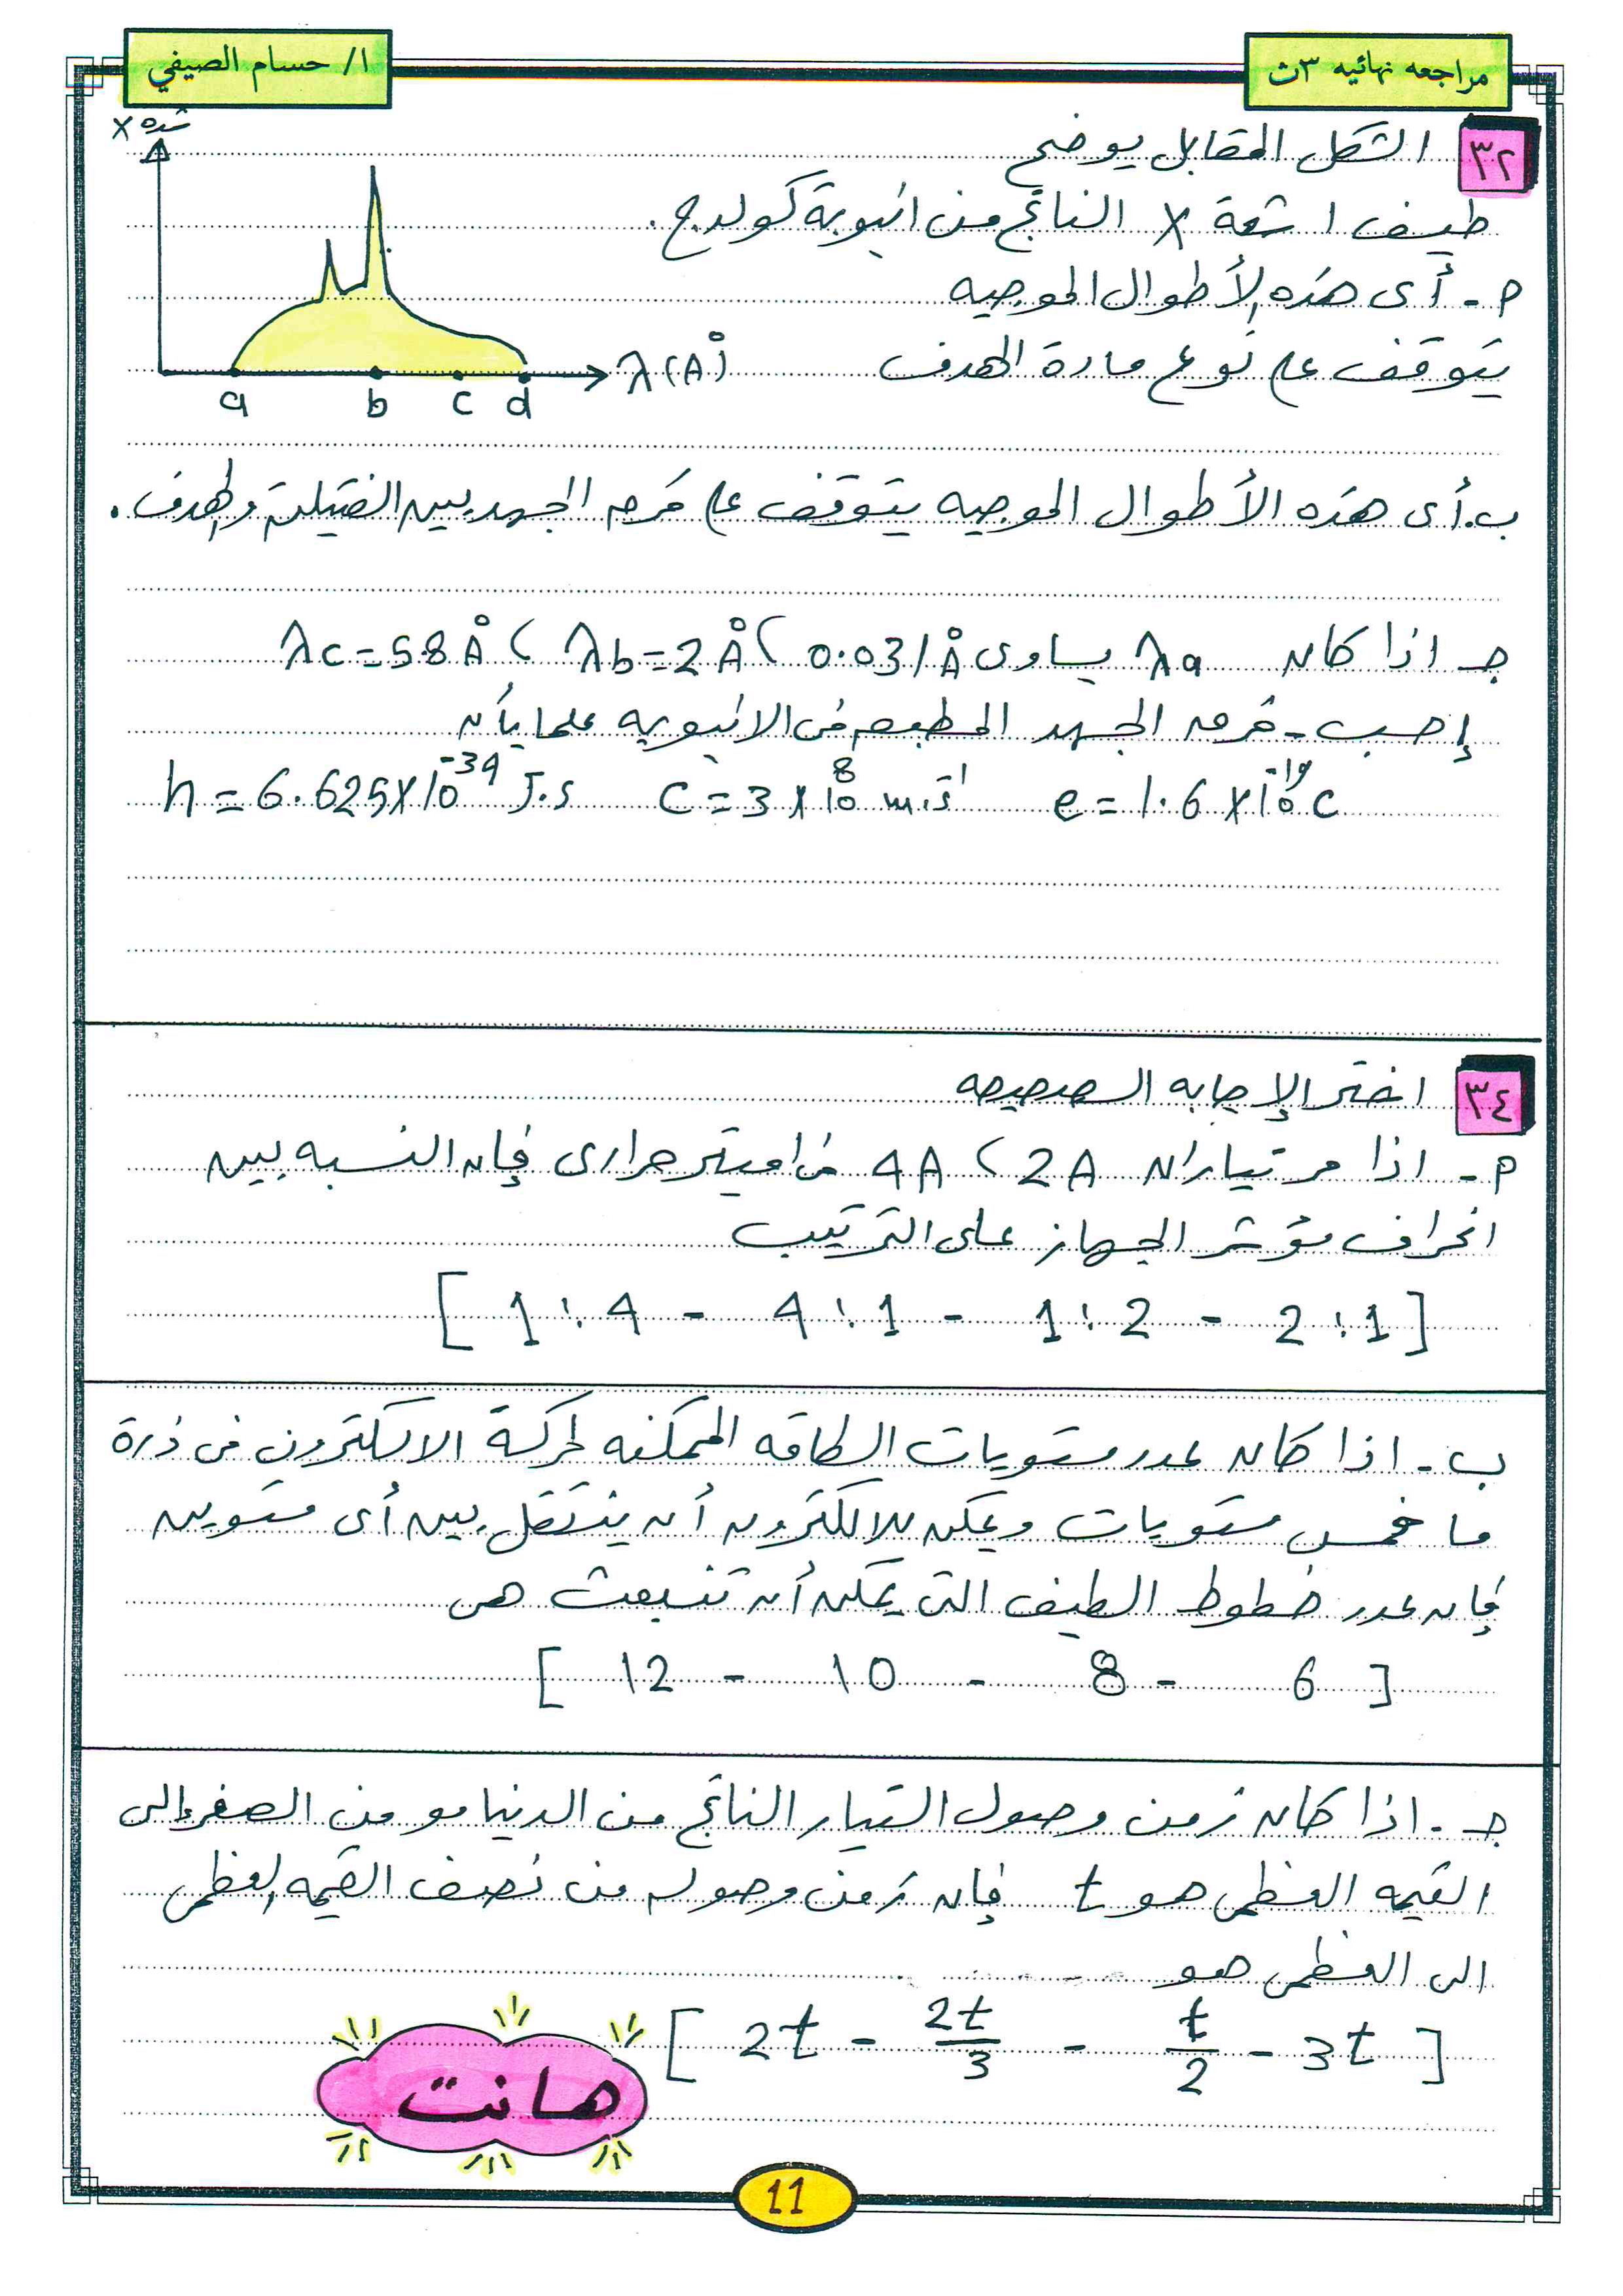 مراجعه نهائيه ٣ث
ا/ حسام الصيفي
٣٢ الشكل المقابل يوضح
طيف اشعة X الناتج من انبوبة كولدج.
شده X
λ(A°)
a b c d
م - أى هذه الأطوال الموجيه
يتوقف على نوع مادة الهدف
ب. أى هذه الأطوال الموجيه يتوقف على فرق الجهد بين الفتيلة والهدف.
جـ اذا كان λa يساوى 0.031A° ، λb=2A° ، λc=5.8A°
إحسب - فرق الجهد المطبق فى الانبوبه علما بأن
h = 6.625x10⁻³⁴ J.s c = 3x10⁸ m.s⁻¹ e = 1.6x10⁻¹⁹c
٣٤ اختر الإجابه الصحيحه
م - اذا مر تياران 2A ، 4A فى اميتر حرارى فإن النسبه بين
انحراف مؤشر الجهاز على الترتيب
[ 1:4 - 4:1 - 1:2 - 2:1 ]
ب - اذا كان عدد مستويات الطاقه الممكنه لحركة الالكترون فى ذرة
ما خمس مستويات ويمكن للالكترون أن ينتقل بين أى مستويين
فإن عدد خطوط الطيف التى يمكن أن تنبعث هى
[ 12 - 10 - 8 - 6 ]
جـ - اذا كان زمن وصول التيار الناتج من الدينامو من الصفر إلى
القيمه العظمى هو t فإن زمن وصوله من نصف القيمه العظمى
الى العظمى هو
[ 2t - 2t/3 - t/2 - 3t ]
هانت
11